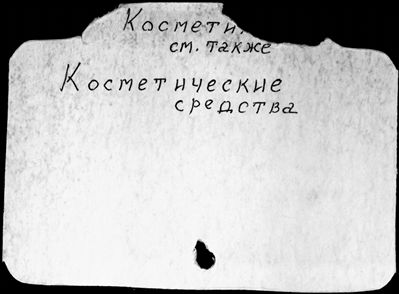 Космети.
см. также
Косметические
средства